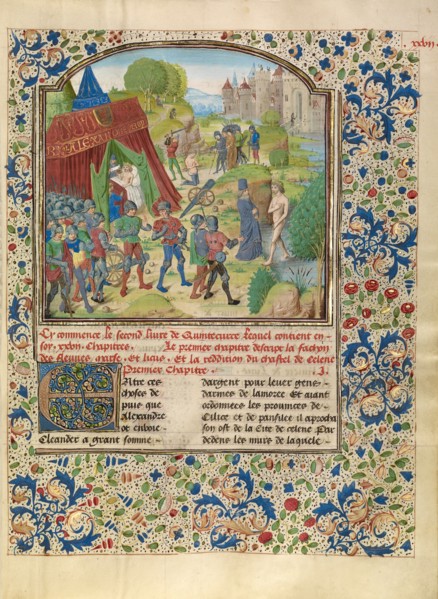 xxvii
Cy commence le second livre de Quintecurce lequel contient en-
soy .xxvii. Chapitres. Le premier chapitre descripe la fachon
des fleuves marse et licus. Et la reddition du chastel de celene
Premier Chapitre .I.
Oultre ces
choses de
puis que
Alexandre
ot envoie
Cleander a grant somme
dargent pour lever gens
darmes de lamoree Et aiant
ordonnees les provinces de
Cilice et de panfilie il aprocha
son ost de la Cite de celene Par
dedens les murs de laquele